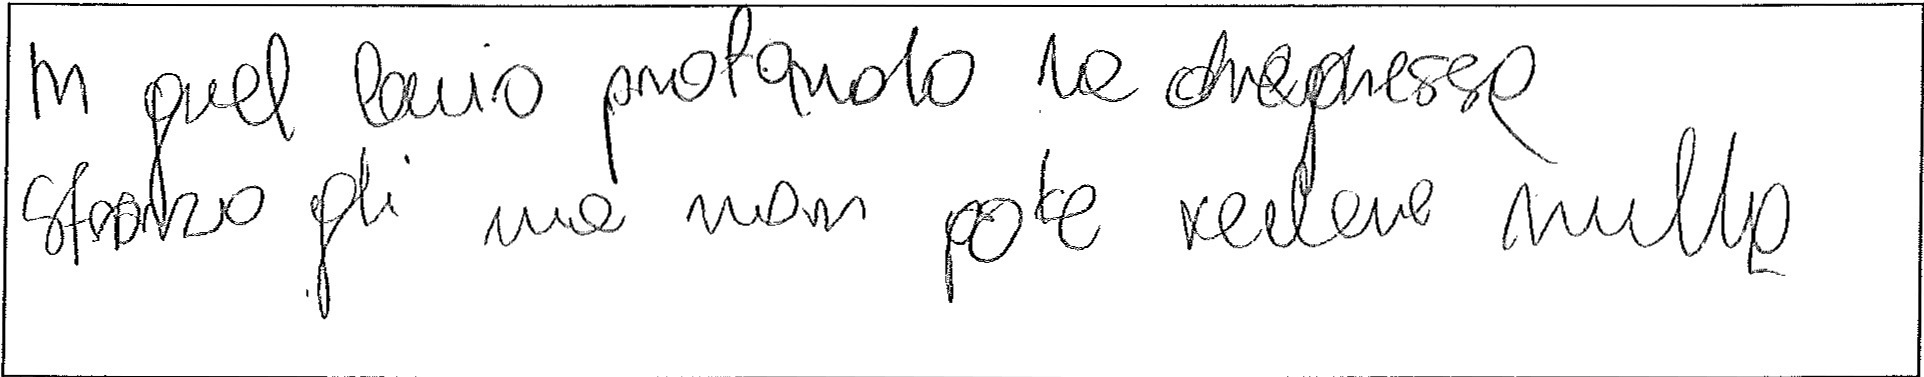 In quel buio profondo la dragonessa
sforzo gli ma non pote vedere nulla